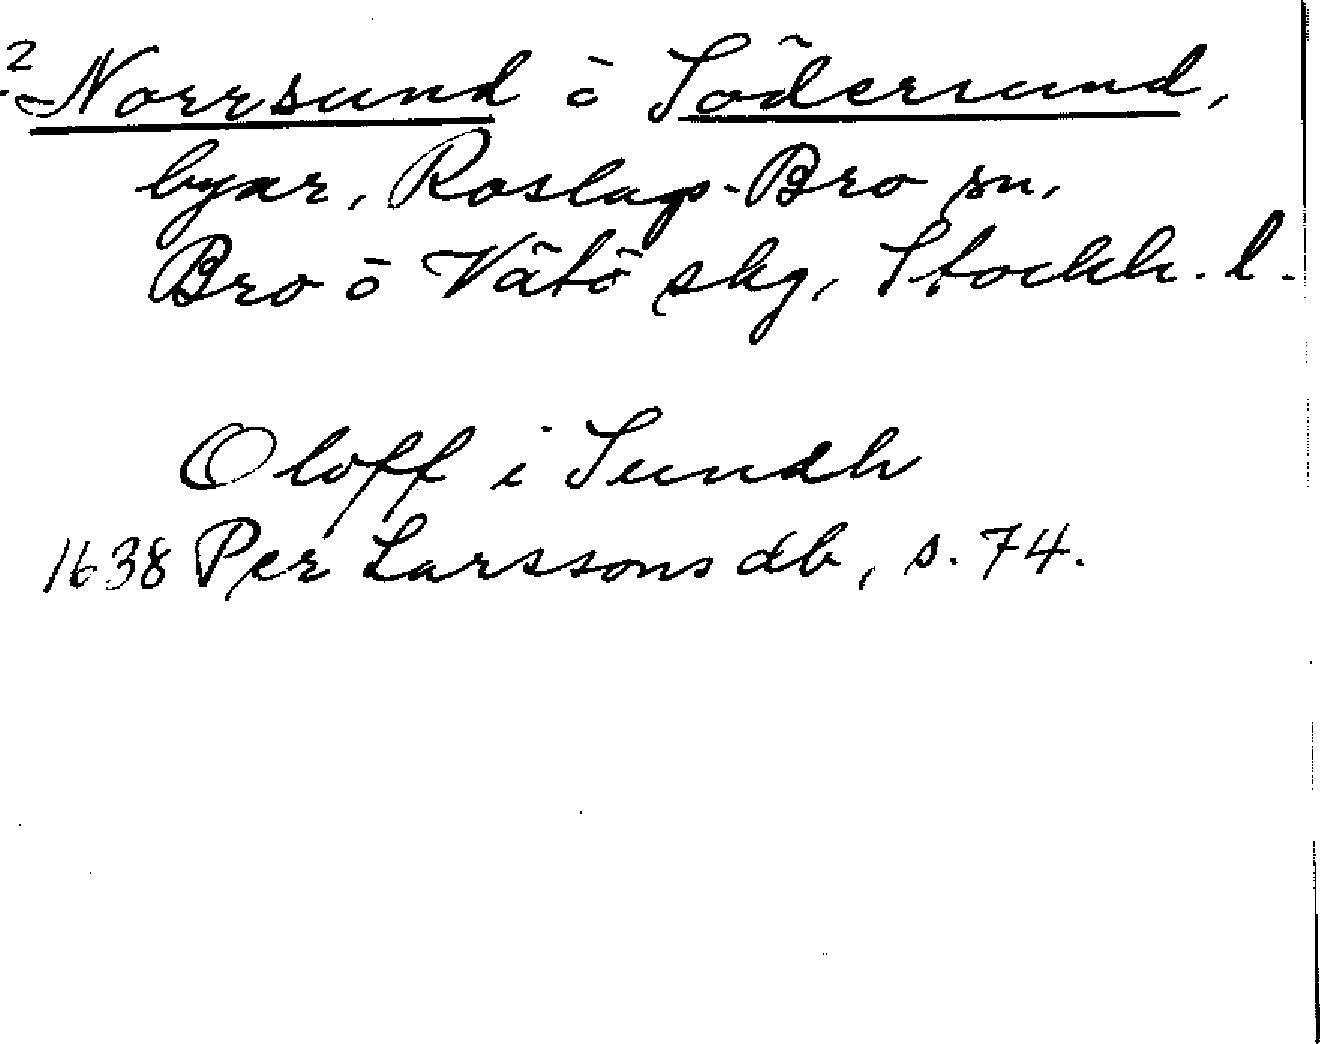 2
Norrsund o Södersund,
byar, Roslags-Bro sn,
Bro o Vätö skg, Stockh. l.
Oloff i Sundh
1638 Per Larssons db, s. 74.